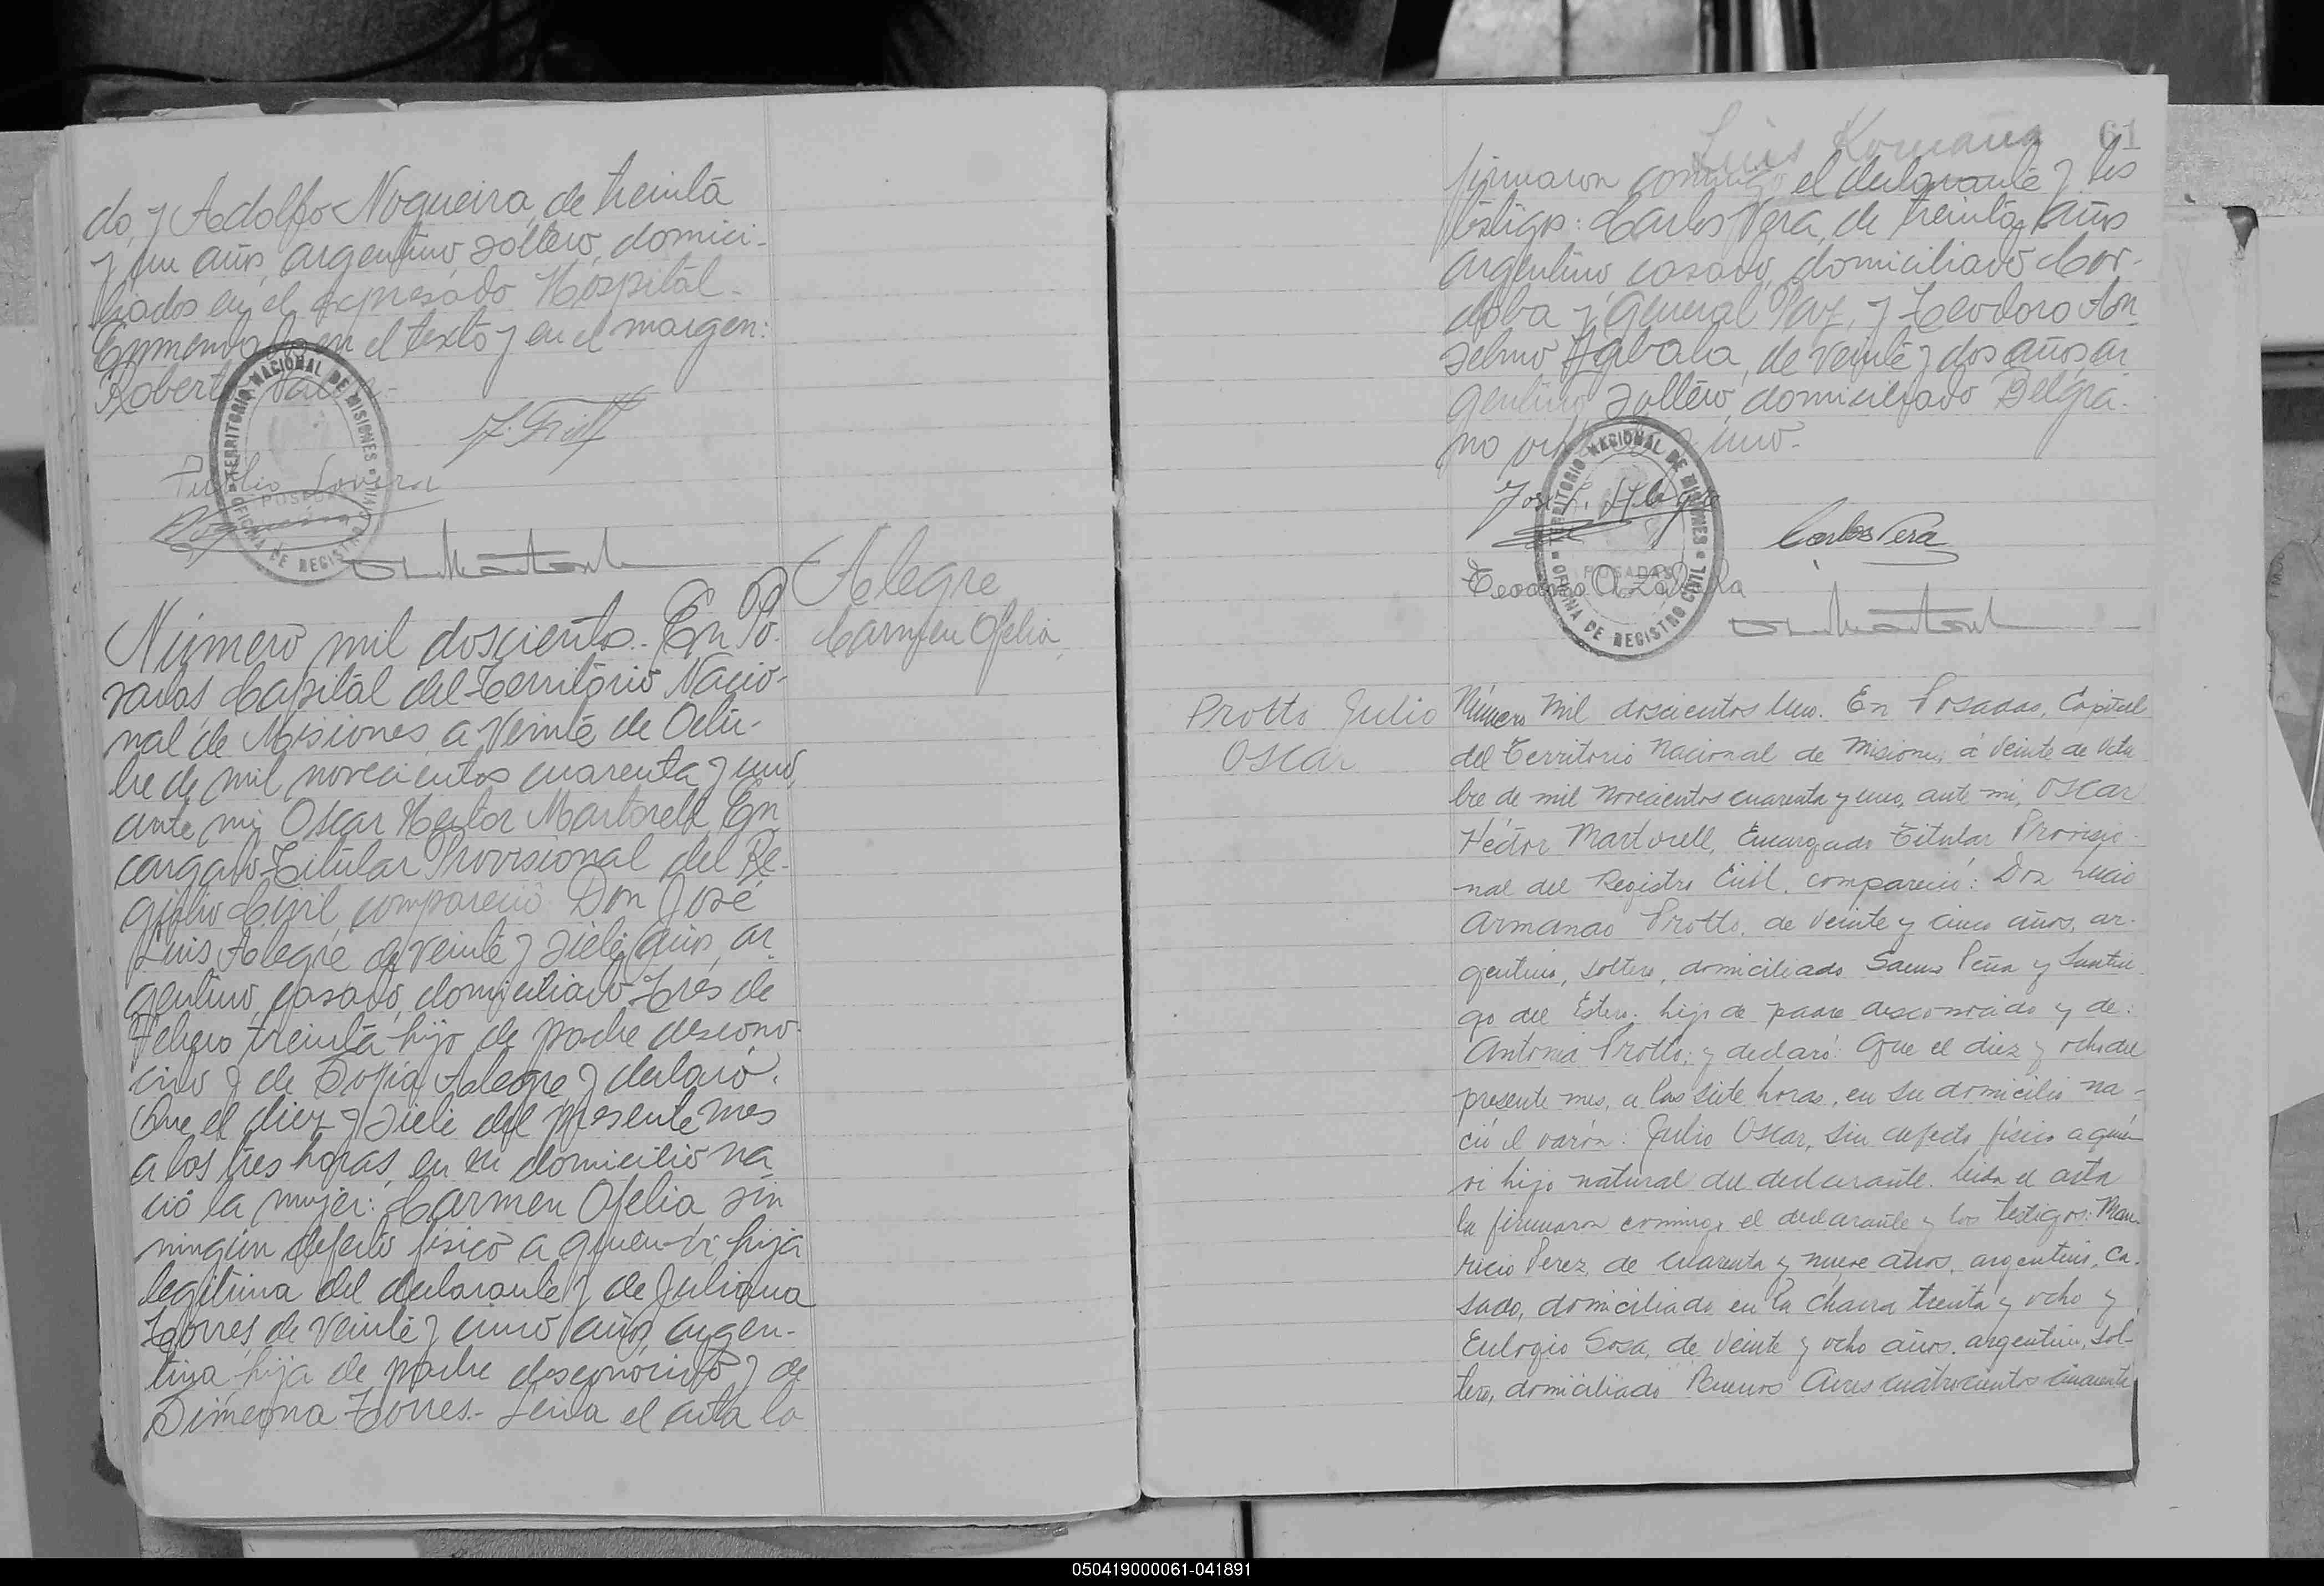 do, y Adolfo Nogueira, de treinta
y un años, argentino, soltero, domici-
liados en el expresado Hospital.-
Enmendado en el texto y en el margen:
Robert
TERRITORIO NACIONAL DE MISIONES
OFICINA DE REGISTRO CIVIL
POSADAS
Lovera
Número mil doscientos.- En Po-
sadas Capital del Territorio Nacio-
nal de Misiones, a veinte de Octu-
bre de mil novecientos cuarenta y uno,
ante mi, Oscar Hector Martorell, En
cargado Titular Provisional del Re-
gistro Civil, compareció Don José
Luis Alegre de veinte y siete años, ar
gentino, casado, domiciliado Tres de
Febrero treinta hijo de padre descono-
cido y de Sofia Alegre y declaró:
Que el diez y siete del presente mes
a las tres horas, en su domicilio na
ció la mujer: Carmen Ofelia sin
ningún defecto físico a quien vi, hija
legitima del declarante y de Juliana
Torres, de veinte y cinco años, argen-
tina, hija de padre desconocido y de
Simeona Torres.- Leida el acta la
Alegre
Carmen Ofelia
Luis Romana
61
firmaron conmigo el declarante y los
testigos: Carlos Vera, de treinta años
argentino, casado, domiciliado Cor-
doba y General Paz, y Teodoro An
selmo Zabala, de veinte y dos años, ar
gentino, soltero, domiciliado Belgra-
no uno.-
José L. Alegre
Carlos Vera
Teodoro A. Zabala
TERRITORIO NACIONAL DE MISIONES
OFICINA DE REGISTRO CIVIL
POSADAS
Protto Julio
Oscar
Número mil doscientos uno. En Posadas, Capital
del Territorio Nacional de Misiones, á veinte de Octu
bre de mil novecientos cuarenta y uno, ante mi, Oscar
Héctor Martorell, Encargado Titular Provisio-
nal del Registro Civil, compareció: Don Lucio
Armando Protto, de veinte y cinco años, ar-
gentino, soltero, domiciliado Saenz Peña y Santia
go del Estero, hijo de padre desconocido y de:
Antonia Protto; y declaró: Que el diez y ocho del
presente mes, a las siete horas, en su domicilio na-
ció el varón: Julio Oscar, sin defecto físico a quien
vi hijo natural del declarante. Leida el acta
la firmaron conmigo el declarante y los testigos: Mau-
ricio Perez, de cuarenta y nueve años, argentino, ca-
sado, domiciliado en la chacra treinta y ocho y
Eulogio Sosa, de veinte y ocho años, argentino, sol-
tero, domiciliado Buenos Aires cuatrocientos cincuenta
050419000061-041891